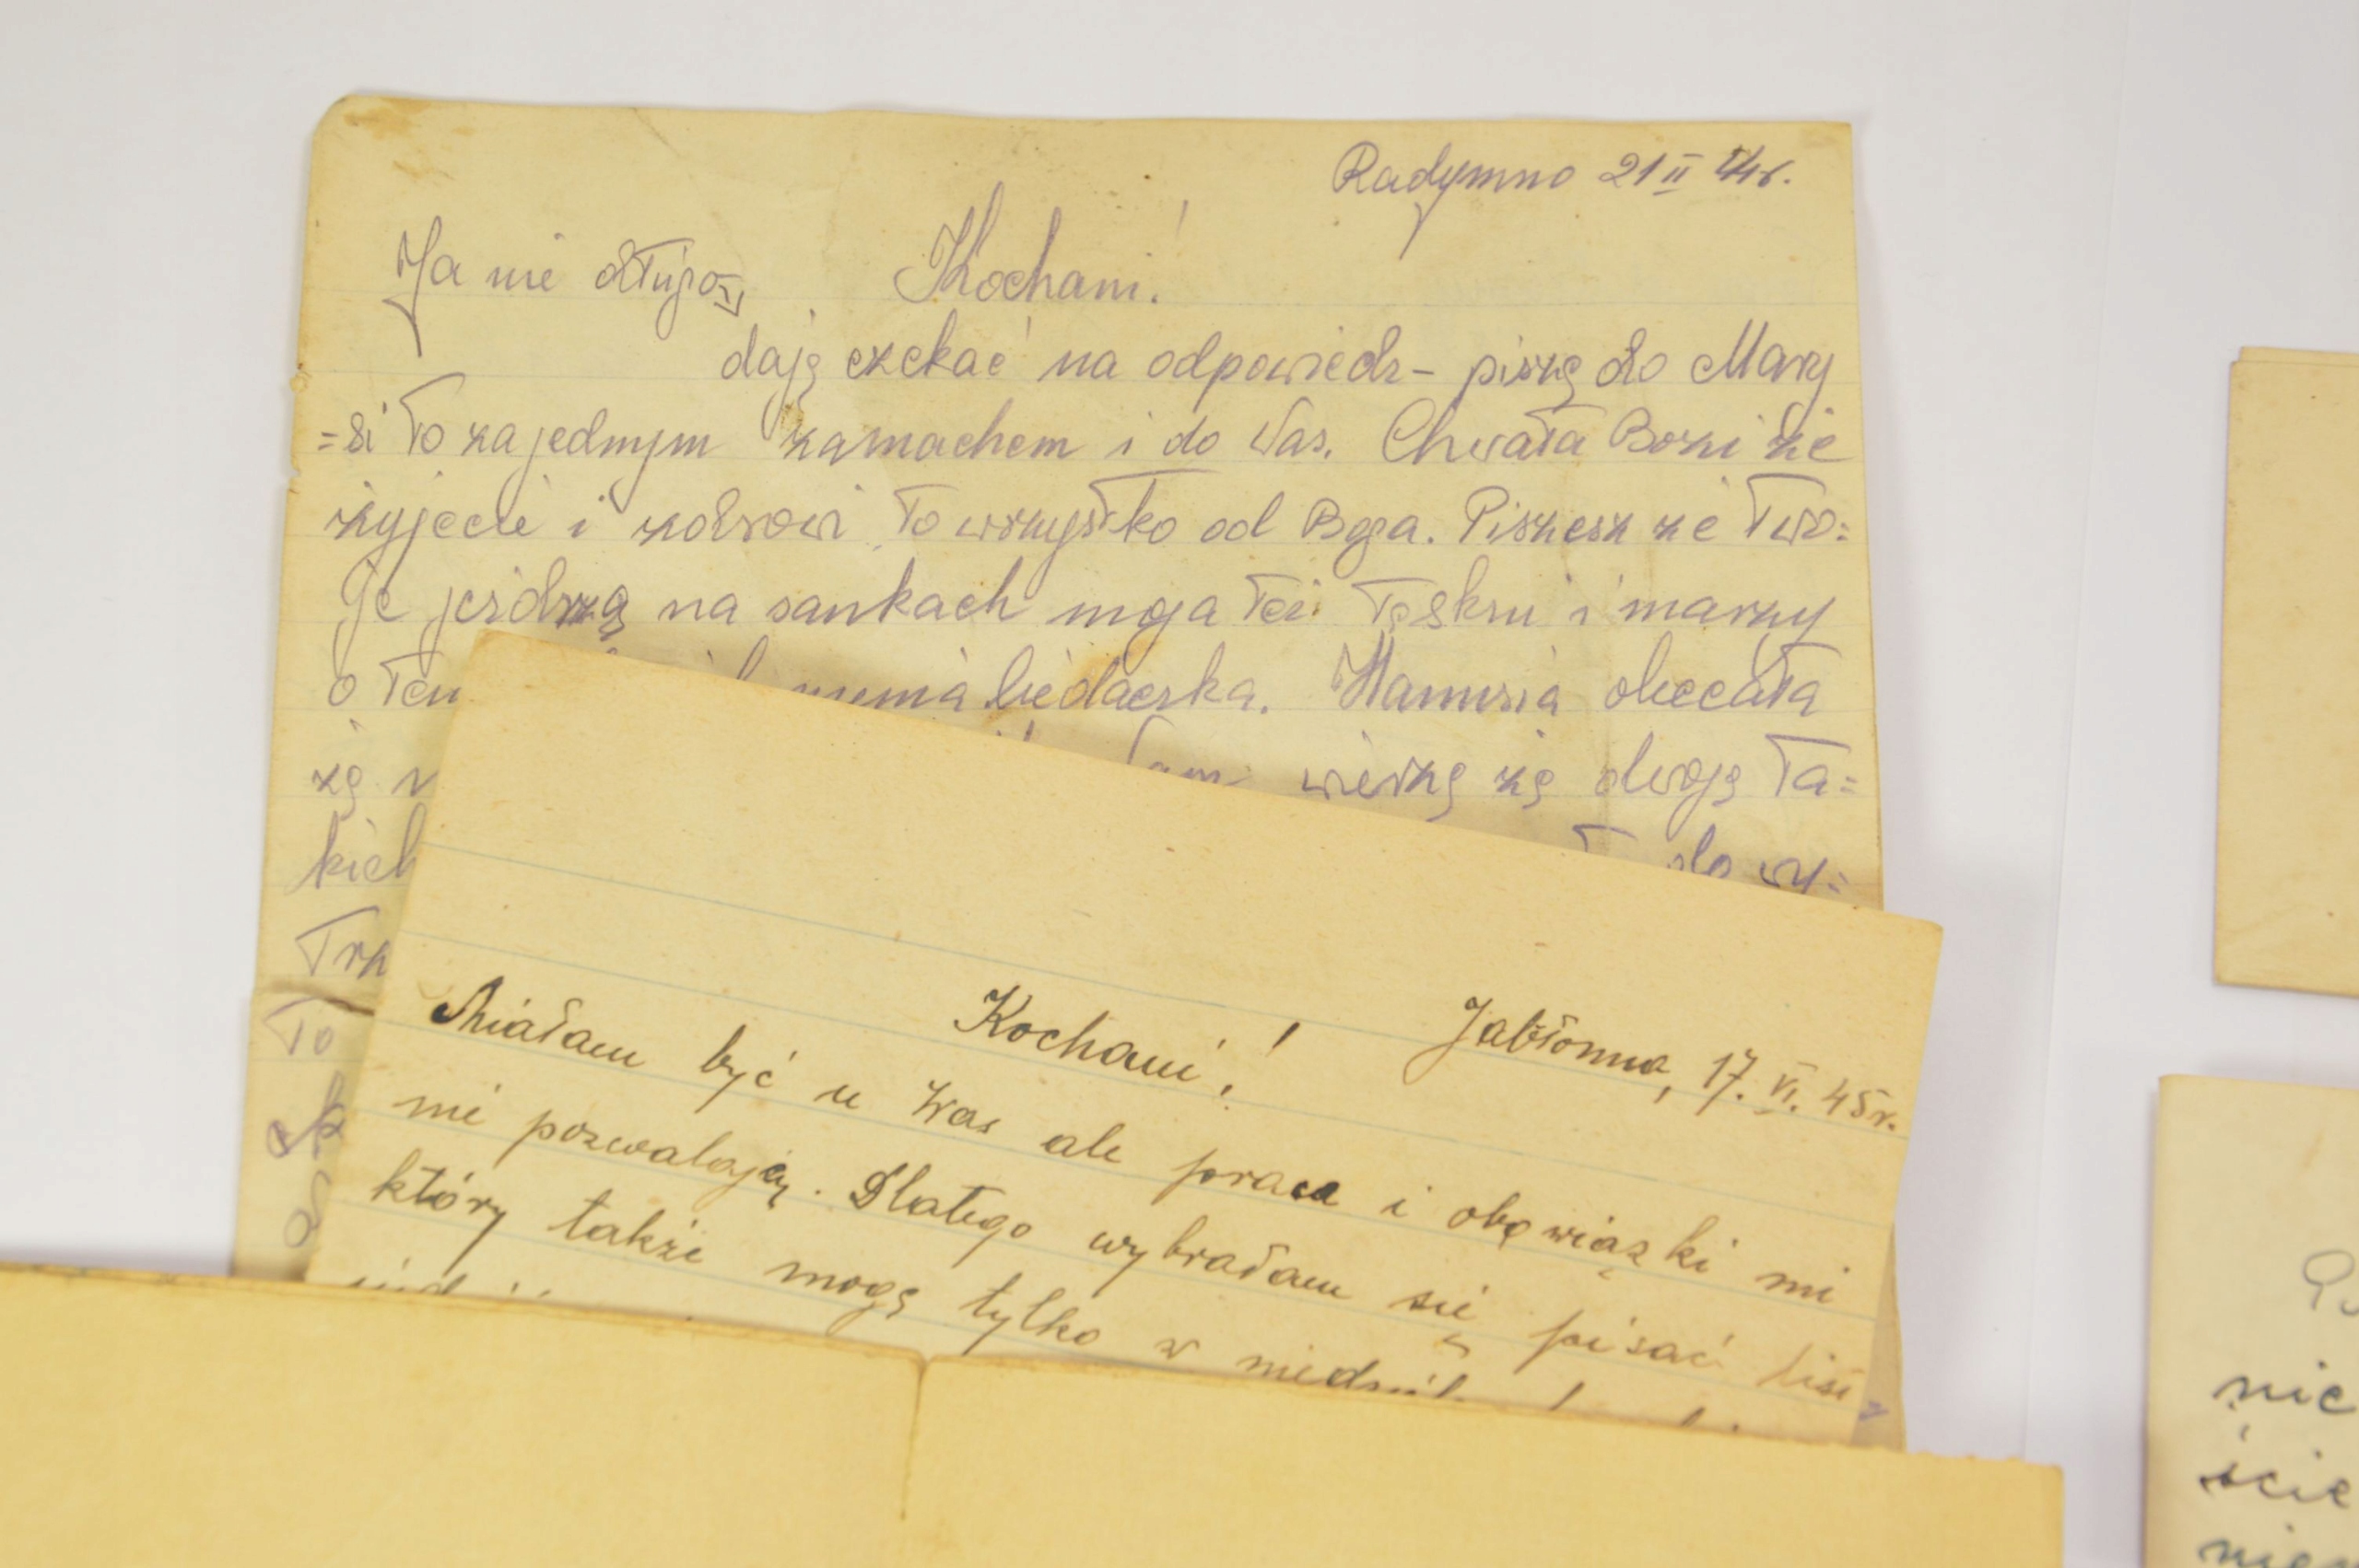 Radymno 21 II 44r.
Kochani!
Ja nie długo
daję czekać na odpowiedz - piszę do Mary
=si to za jednym zamachem i do Was. Chwała Bozi że
żyjecie i zdrowi to wszystko od Boga. Piszesz że Two=
je jeżdżą na sankach moja też tęskni i marzy
o tem niema biedaczka. Hanusia obiecała
zę wierzę zę dwoje ta=
kich do wy=
Trz
To
Kochani! Jabłonna, 17. VI. 45r.
Miałam być u Was ale praca i obowiązki mi
nie pozwalają. Dlatego wybrałam się pisać list
który także mogę tylko w
nie
ście